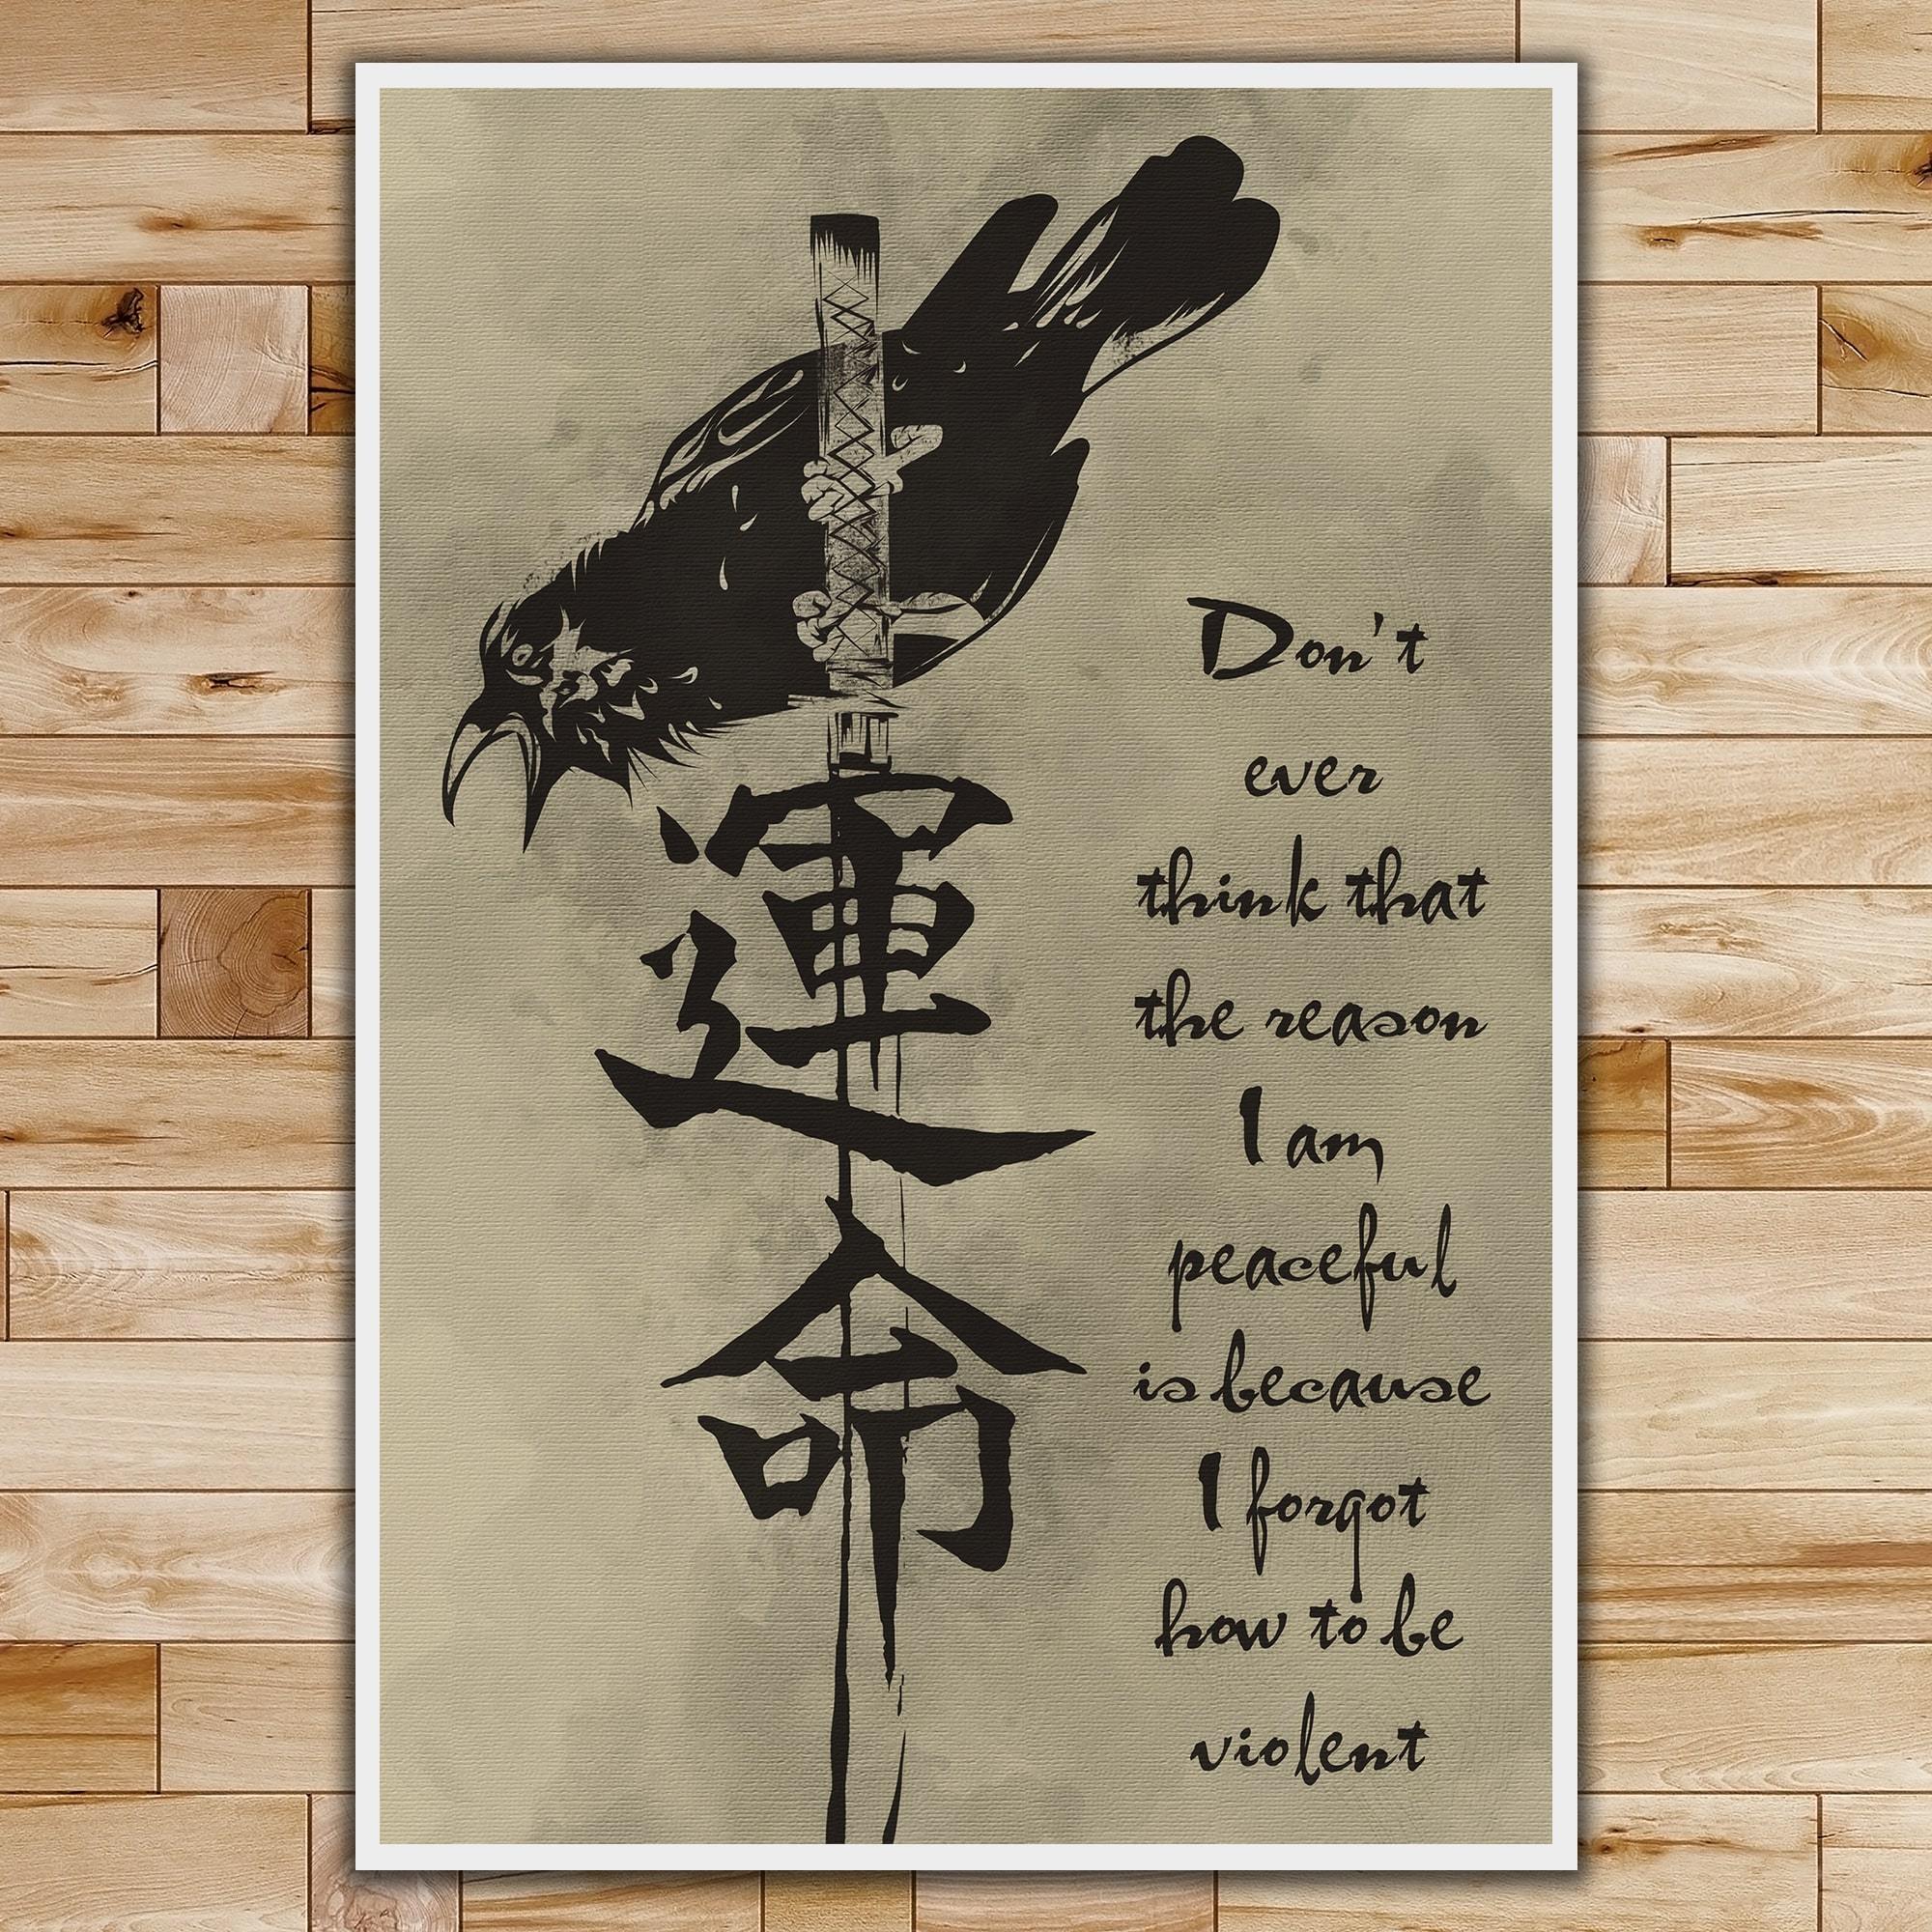 運命
Don't
ever
think that
the reason
I am
peaceful
is because
I forgot
how to be
violent